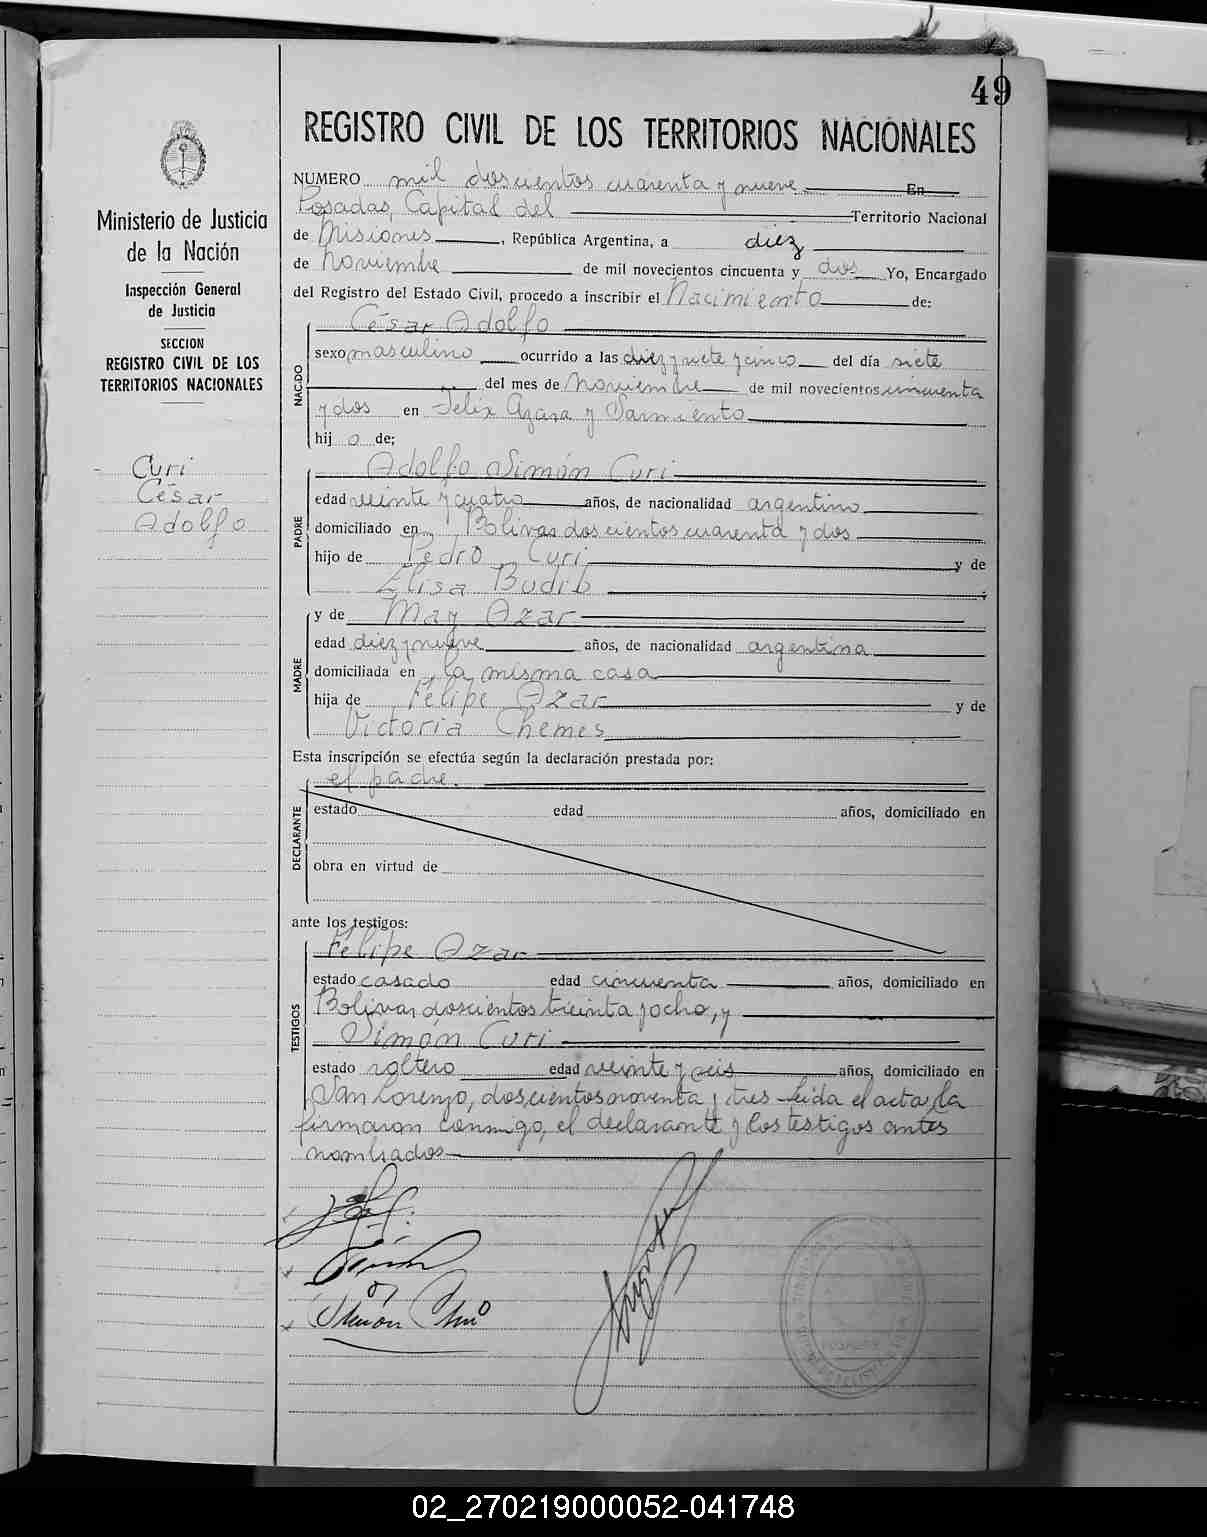 49
REGISTRO CIVIL DE LOS TERRITORIOS NACIONALES
Ministerio de Justicia
de la Nación
Inspección General
de Justicia
SECCION
REGISTRO CIVIL DE LOS
TERRITORIOS NACIONALES
Curi
César
Adolfo
NUMERO mil doscientos cuarenta y nueve En
Posadas, Capital del Territorio Nacional
de Misiones, República Argentina, a diez
de Noviembre de mil novecientos cincuenta y dos Yo, Encargado
del Registro del Estado Civil, procedo a inscribir el Nacimiento de:
NACIDO
César Adolfo
sexo masculino ocurrido a las diez y siete y cinco del día siete
del mes de Noviembre de mil novecientos cincuenta
y dos en Félix Azara y Sarmiento
hij o de;
PADRE
Adolfo Simón Curi
edad veinte y cuatro años, de nacionalidad argentino
domiciliado en Bolivar doscientos cuarenta y dos
hijo de Pedro Curi y de
Elisa Budib
MADRE
y de May Azar
edad diez y nueve años, de nacionalidad argentina
domiciliada en la misma casa
hija de Felipe Azar y de
Victoria Chemes
Esta inscripción se efectúa según la declaración prestada por:
DECLARANTE
el padre.
estado edad años, domiciliado en
obra en virtud de
ante los testigos:
TESTIGOS
Felipe Azar
estado casado edad cincuenta años, domiciliado en
Bolivar doscientos treinta y ocho, y
Simón Curi
estado soltero edad veinte y seis años, domiciliado en
San Lorenzo, doscientos noventa y tres leida el acta, la
firmaron conmigo, el declarante y los testigos antes
nombrados
Simón Curi
02_270219000052-041748